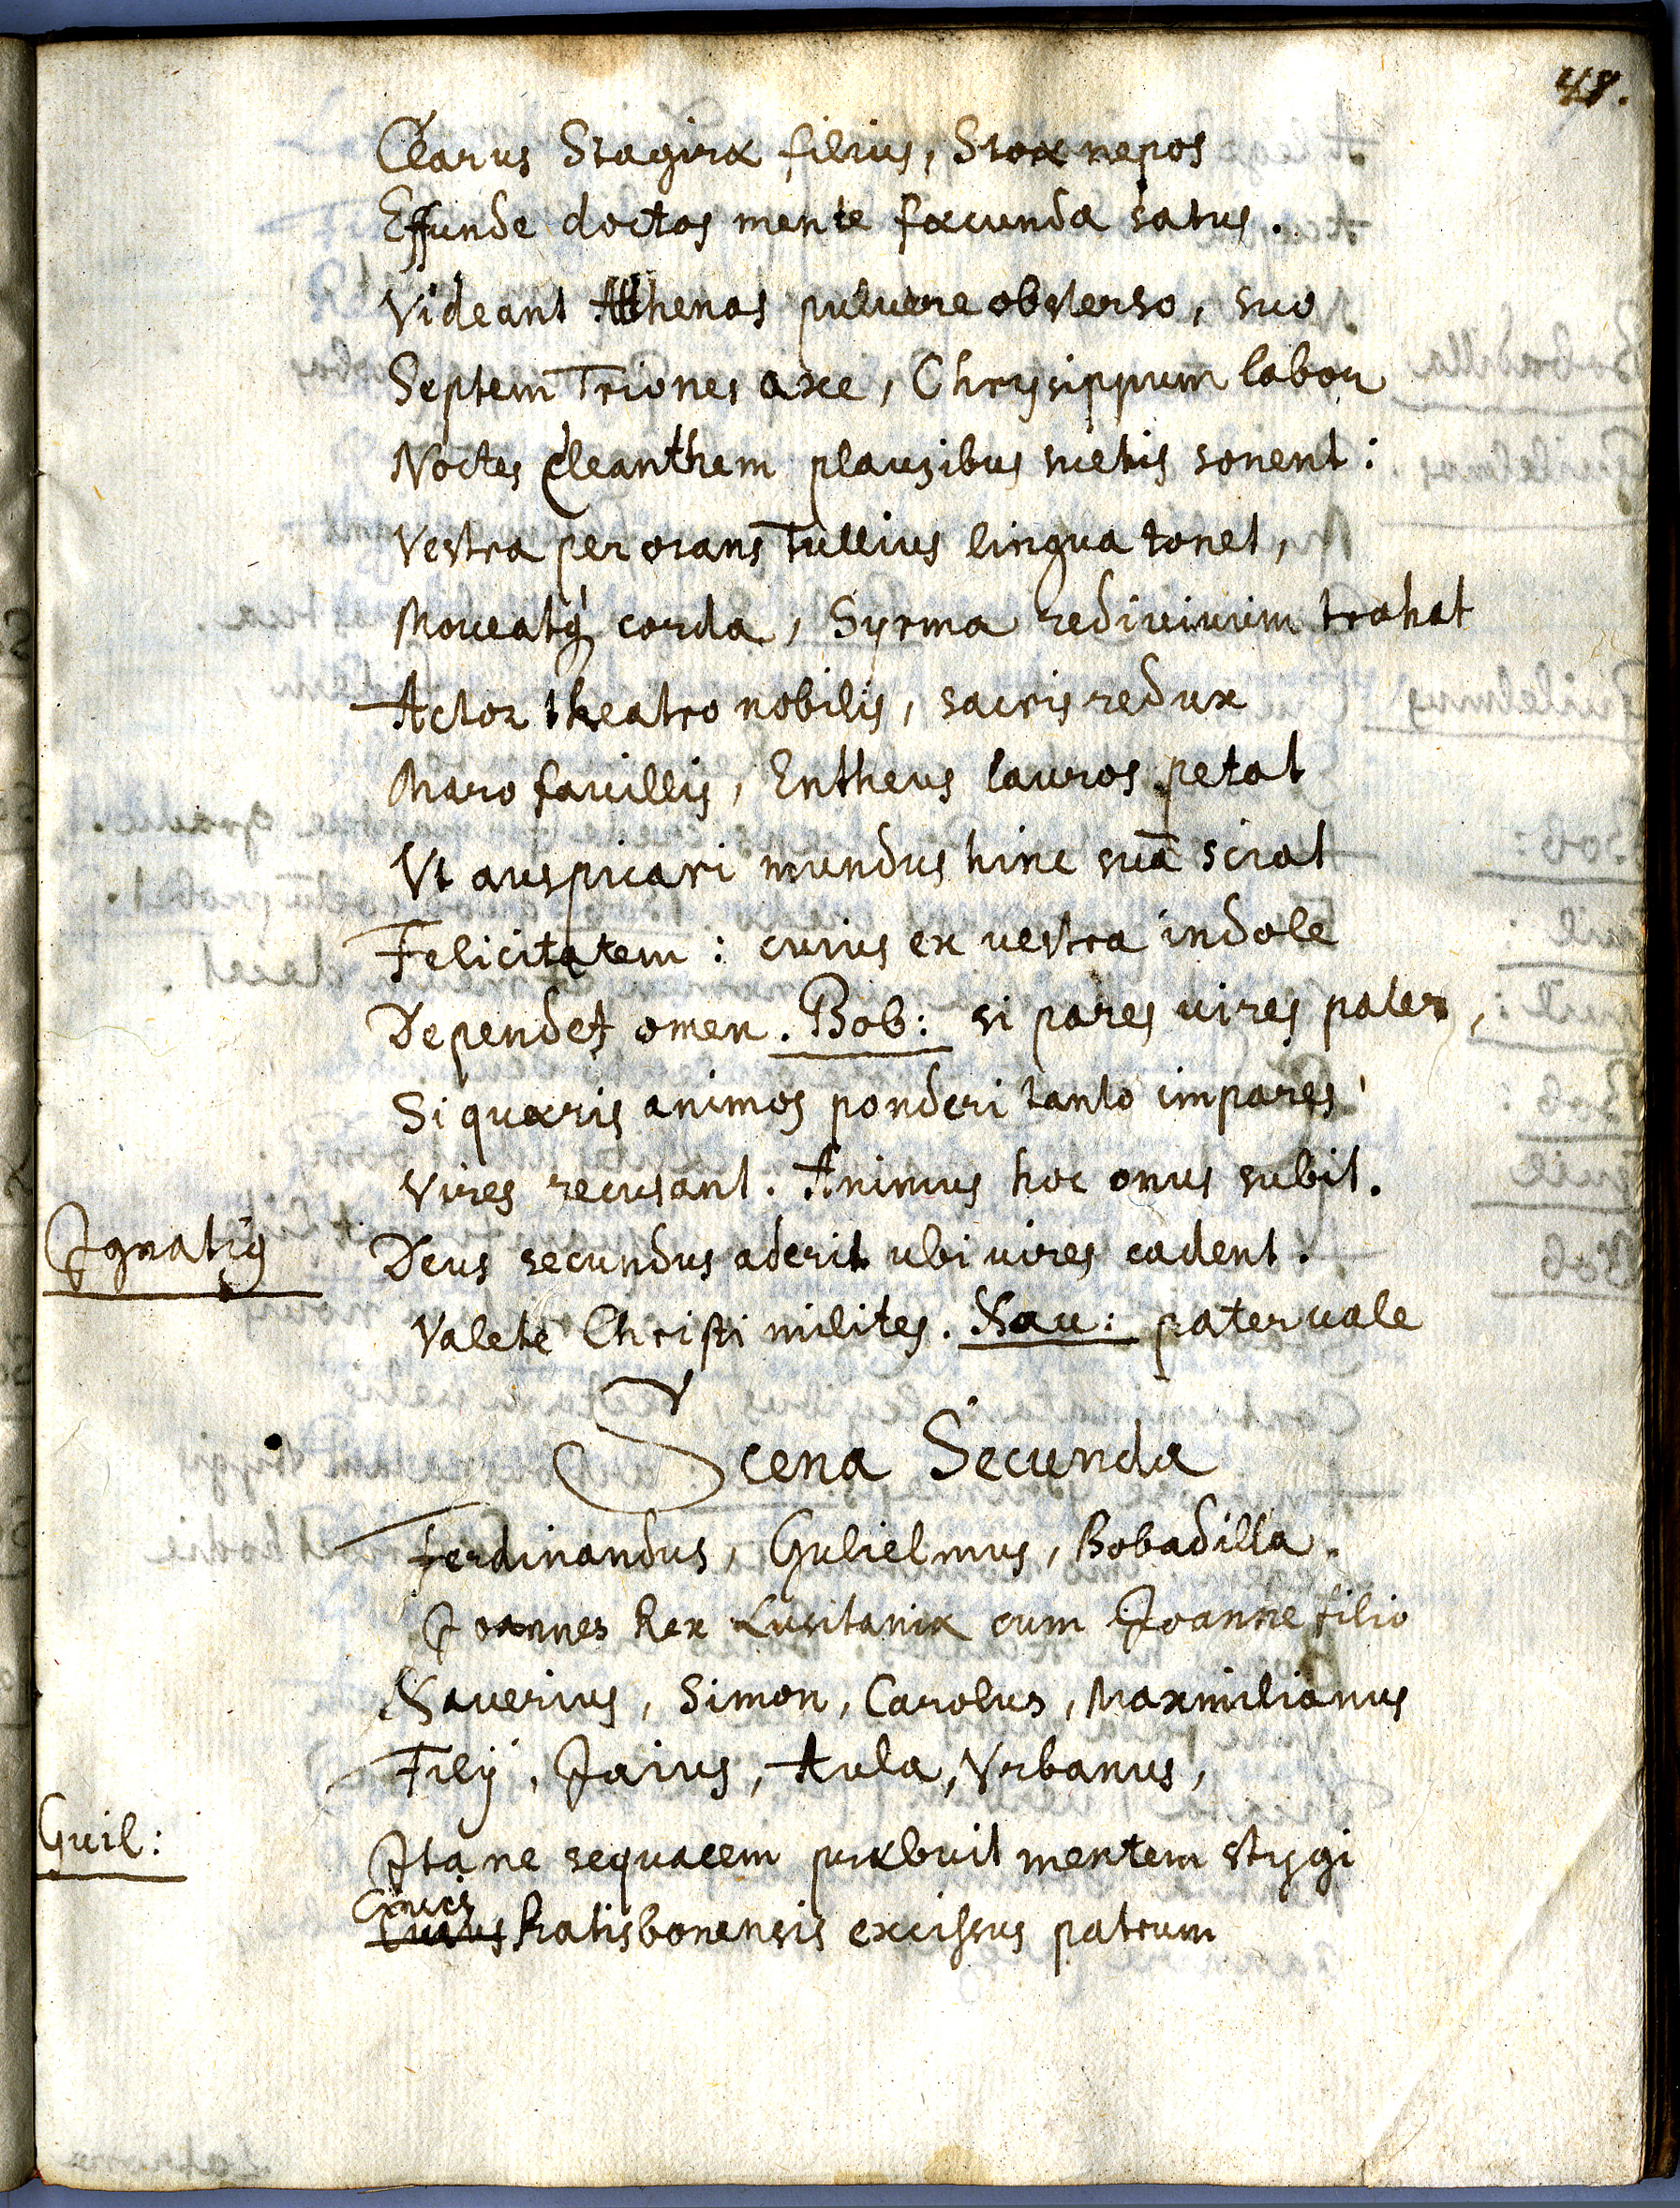 48.
Clarus Stagiræ filius, Stoæ nepos
Effunde doctos mente fæcunda satus.
Videant Athenas puluere obsterso, suo
Septem Triones axe, Chrysippum labor
Noctes Cleanthem plausibus suetis sonent:
Vestra perorans Tullius lingua tonet,
Moueatq́ corda, Syrma rediuiuum trahat
Actor theatro nobilis, sacris redux
Maro fauillis, Entheus lauros petat
Vt auspicari mundus hinc suā sciat
Felicitatem: cuius ex vestra indole
Dependet omen. Bob: si pares vires pater,
Si quæris animos ponderi tanto impares
Vires recusant. Animus hoc onus subit.
Ignatiꝰ Deus secundus aderit ubi vires cadent.
Valete Christi milites. Xau: pater uale
Scena Secunda
Ferdinandus, Gulielmus, Bobadilla.
Joannes Rex Lusitaniæ cum Joanne filio
Xauerius, Simon, Carolus, Maximilianus
Filij, Jaius, Aula, Vrbanus,
Guil: Itane sequacem præbuit mentem stygi
Ciuis
Ratisbonensis excissus patrum